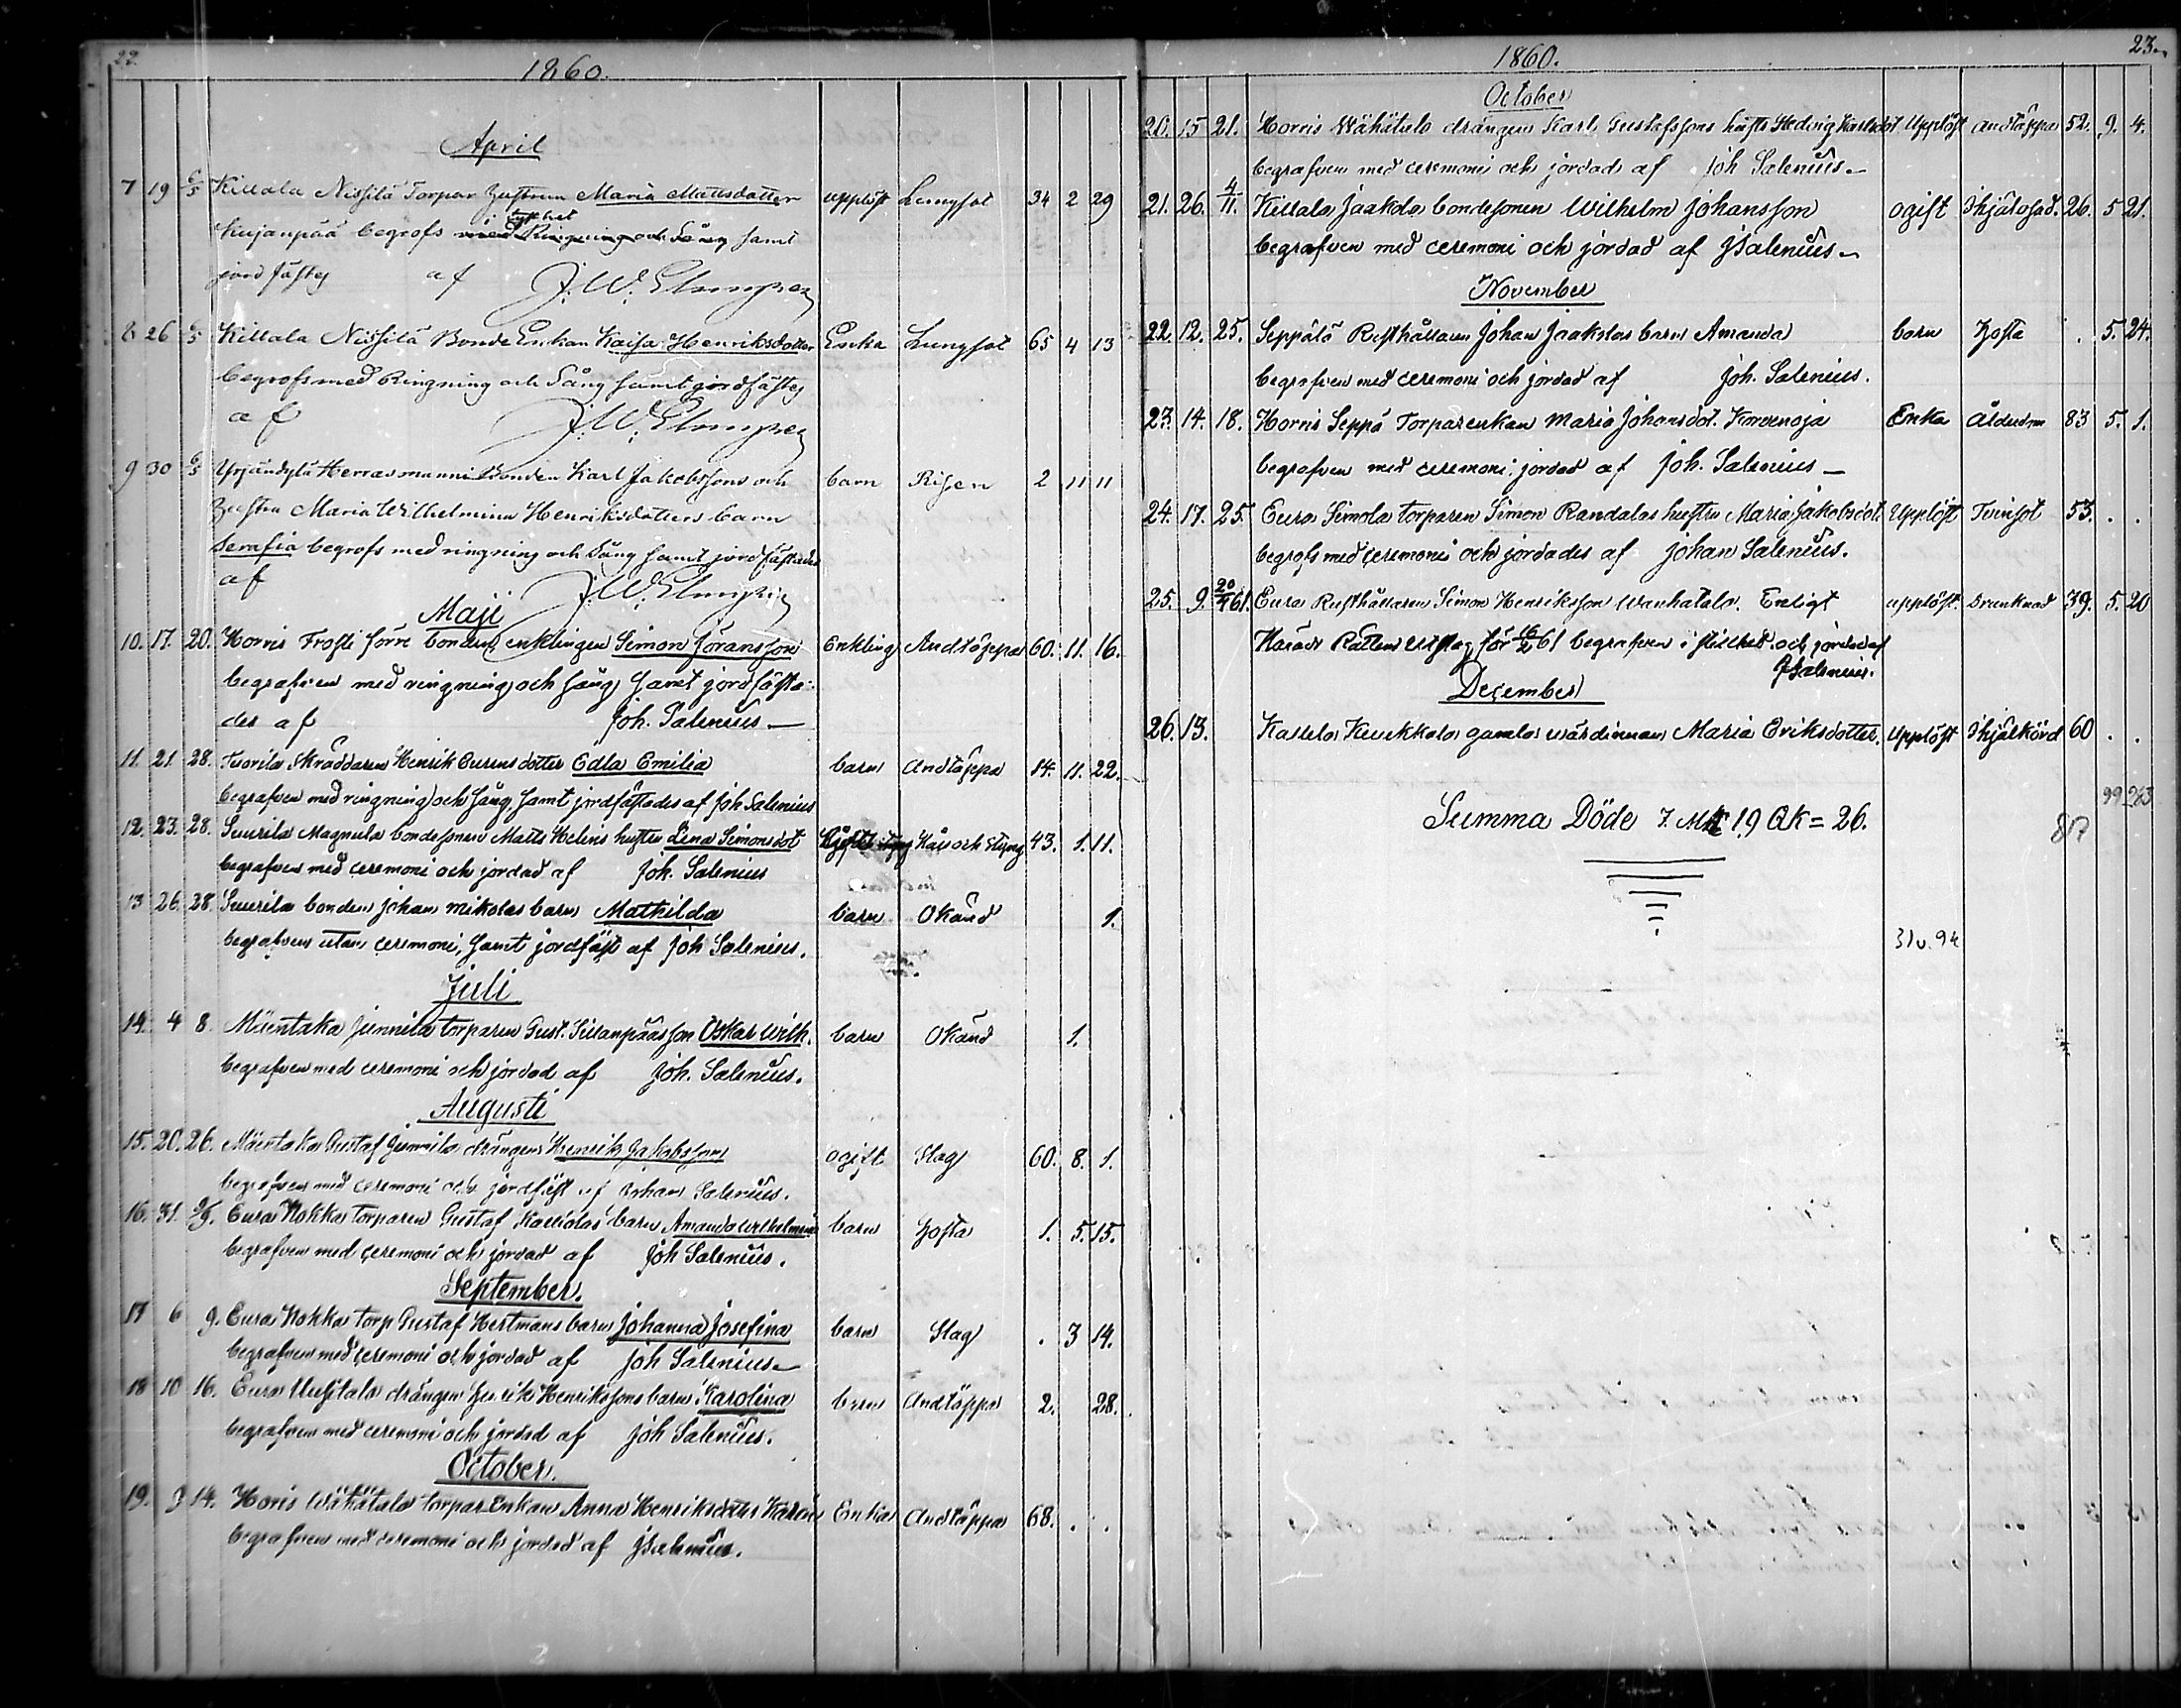 22.
1860.
April
7 19 6/5 Killala Nissilä Torpar Hustrun Maria Mattsdotter upplöst Lungsot 34 2 29
i tysthet
Kujanpää begrofs med Ringning och Sång samt
jordfästes af J. W. Elmgren
8 26 6/5 Killala Nissilä Bonde Enkan Kaisa Henriksdotter Enka Lungsot 65 4 13
begrofs med Ringning och Sång samt jordfästes
af J. W. Elmgren
9 30 6/5 Yrjändylä Herrasmanni Bonden Karl Jakobssons och barn Risen 2 11 11
Hustru Maria Wilhelmina Henriksdotters barn
Serafia begrofs med ringning och Sång samt jordfästades
af J. W. Elmgren
Maji
10. 17. 20. Horris Frosti förre bonden, enklingen Simon Göransson Enkling Andtäppa 60. 11. 16.
begrafven med ringning och sång samt jordfästa-
des af Joh. Salenius
11. 21. 28. Tuorila Skräddaren Henrik Eurens dotter Edla Emilia barn Andtäppa 14. 11. 22.
begrafven med ringning och sång samt jordfästades af Joh Salenius
12. 23. 28. Suurila Magnula bondesonen Matts Helins hustru Lena Simonsdot Hås och Styng 43. 1. 11.
begrafven med ceremoni och jordad af Joh. Salenius
13 26. 28. Suurila bonden Johan Mikolas barn Mathilda barn Okänd 1.
begrafven utan ceremoni, samt jordfäst af Joh Salenius.
Juli
14. 4 8. Mäentaka Junnila torparen Gust. Sillanpääs son Oskar Wilh. barn Okänd 1.
begrafven med ceremoni och jordad af Joh. Salenius.
Augusti
15. 20. 26. Mäentaka Gustaf Junnila drängen Henrik Jakobsson ogift Slag 60. 8. 1.
begrafven med ceremoni och jordfäst af Johan Salenius.
16. 31. 2/9. Eura Nokka torparen Gustaf Kalliolas barn Amanda Wilhelmina barn Hosta 1. 5. 15.
begrafven med ceremoni och jordad af Joh Salenius.
September.
17 6 9. Eura Nokka torp Gustaf Hertmans barn Johanna Josefina barn Slag . 3 14.
begrafven med ceremoni och jordad af Joh Salenius
18 10 16. Eura Uusitalo drängen Henrik Henrikssons barn Karolina barn Andtäppa 2. 28.
begrafven med ceremoni och jordad af Joh Salenius.
October.
19. 9 14. Horis Wähätalo torpar Enkan Anna Henriksdotter Enka Andtäppa 68. . .
begrafven med ceremoni och jordad af J Salenius.
23.
1860.
October
20. 15 21. Horris Wähätalo drängen Karl Gustafssons hustr Hedvig Karlsdot Upplöst Andtäppa 52. 9. 4.
begrafven med ceremoni och jordad af Joh Salenius.
21. 26. 4/11. Killala Jaakola bondesonen Wilhelm Johansson ogift Ihjälslad. 26. 5 21.
begrafven med ceremoni och jordad af J Salenius
November
22. 12. 25. Seppälä Rusthållaren Johan Jaakolas barn Amanda barn Hosta . 5. 24.
begrafven med ceremoni och jordad af Joh. Salenius.
23. 14. 18. Horris Seppä Torparenkan Maria Johansdot. Korvenoja Enka Ålderdom 83 5. 1.
begrafven med ceremoni, jordad af Joh. Salenius
24. 17. 25. Eura Simola torparen Simon Randalas hustru Maria Jakobsdot. Upplöst Tvinsot 53. . .
begrofs med ceremoni och jordades af Johan Salenius.
25. 9. 61. Eura Rusthållaren Simon Henriksson Wanhatalo. Enligt upplöst. Drunknad 39. 5. 20
Härads Rättens utslag för 61 begrafven i stillhet och jordad af
J Salenius.
December
26. 13. Kallela Keuekkala gamla värdinnan Maria Eriksdotter. Upplöst Ihjälkörd 60 . .
99 263
Summa Döde 7. Mk 19 Qk = 26.
31 v. 94